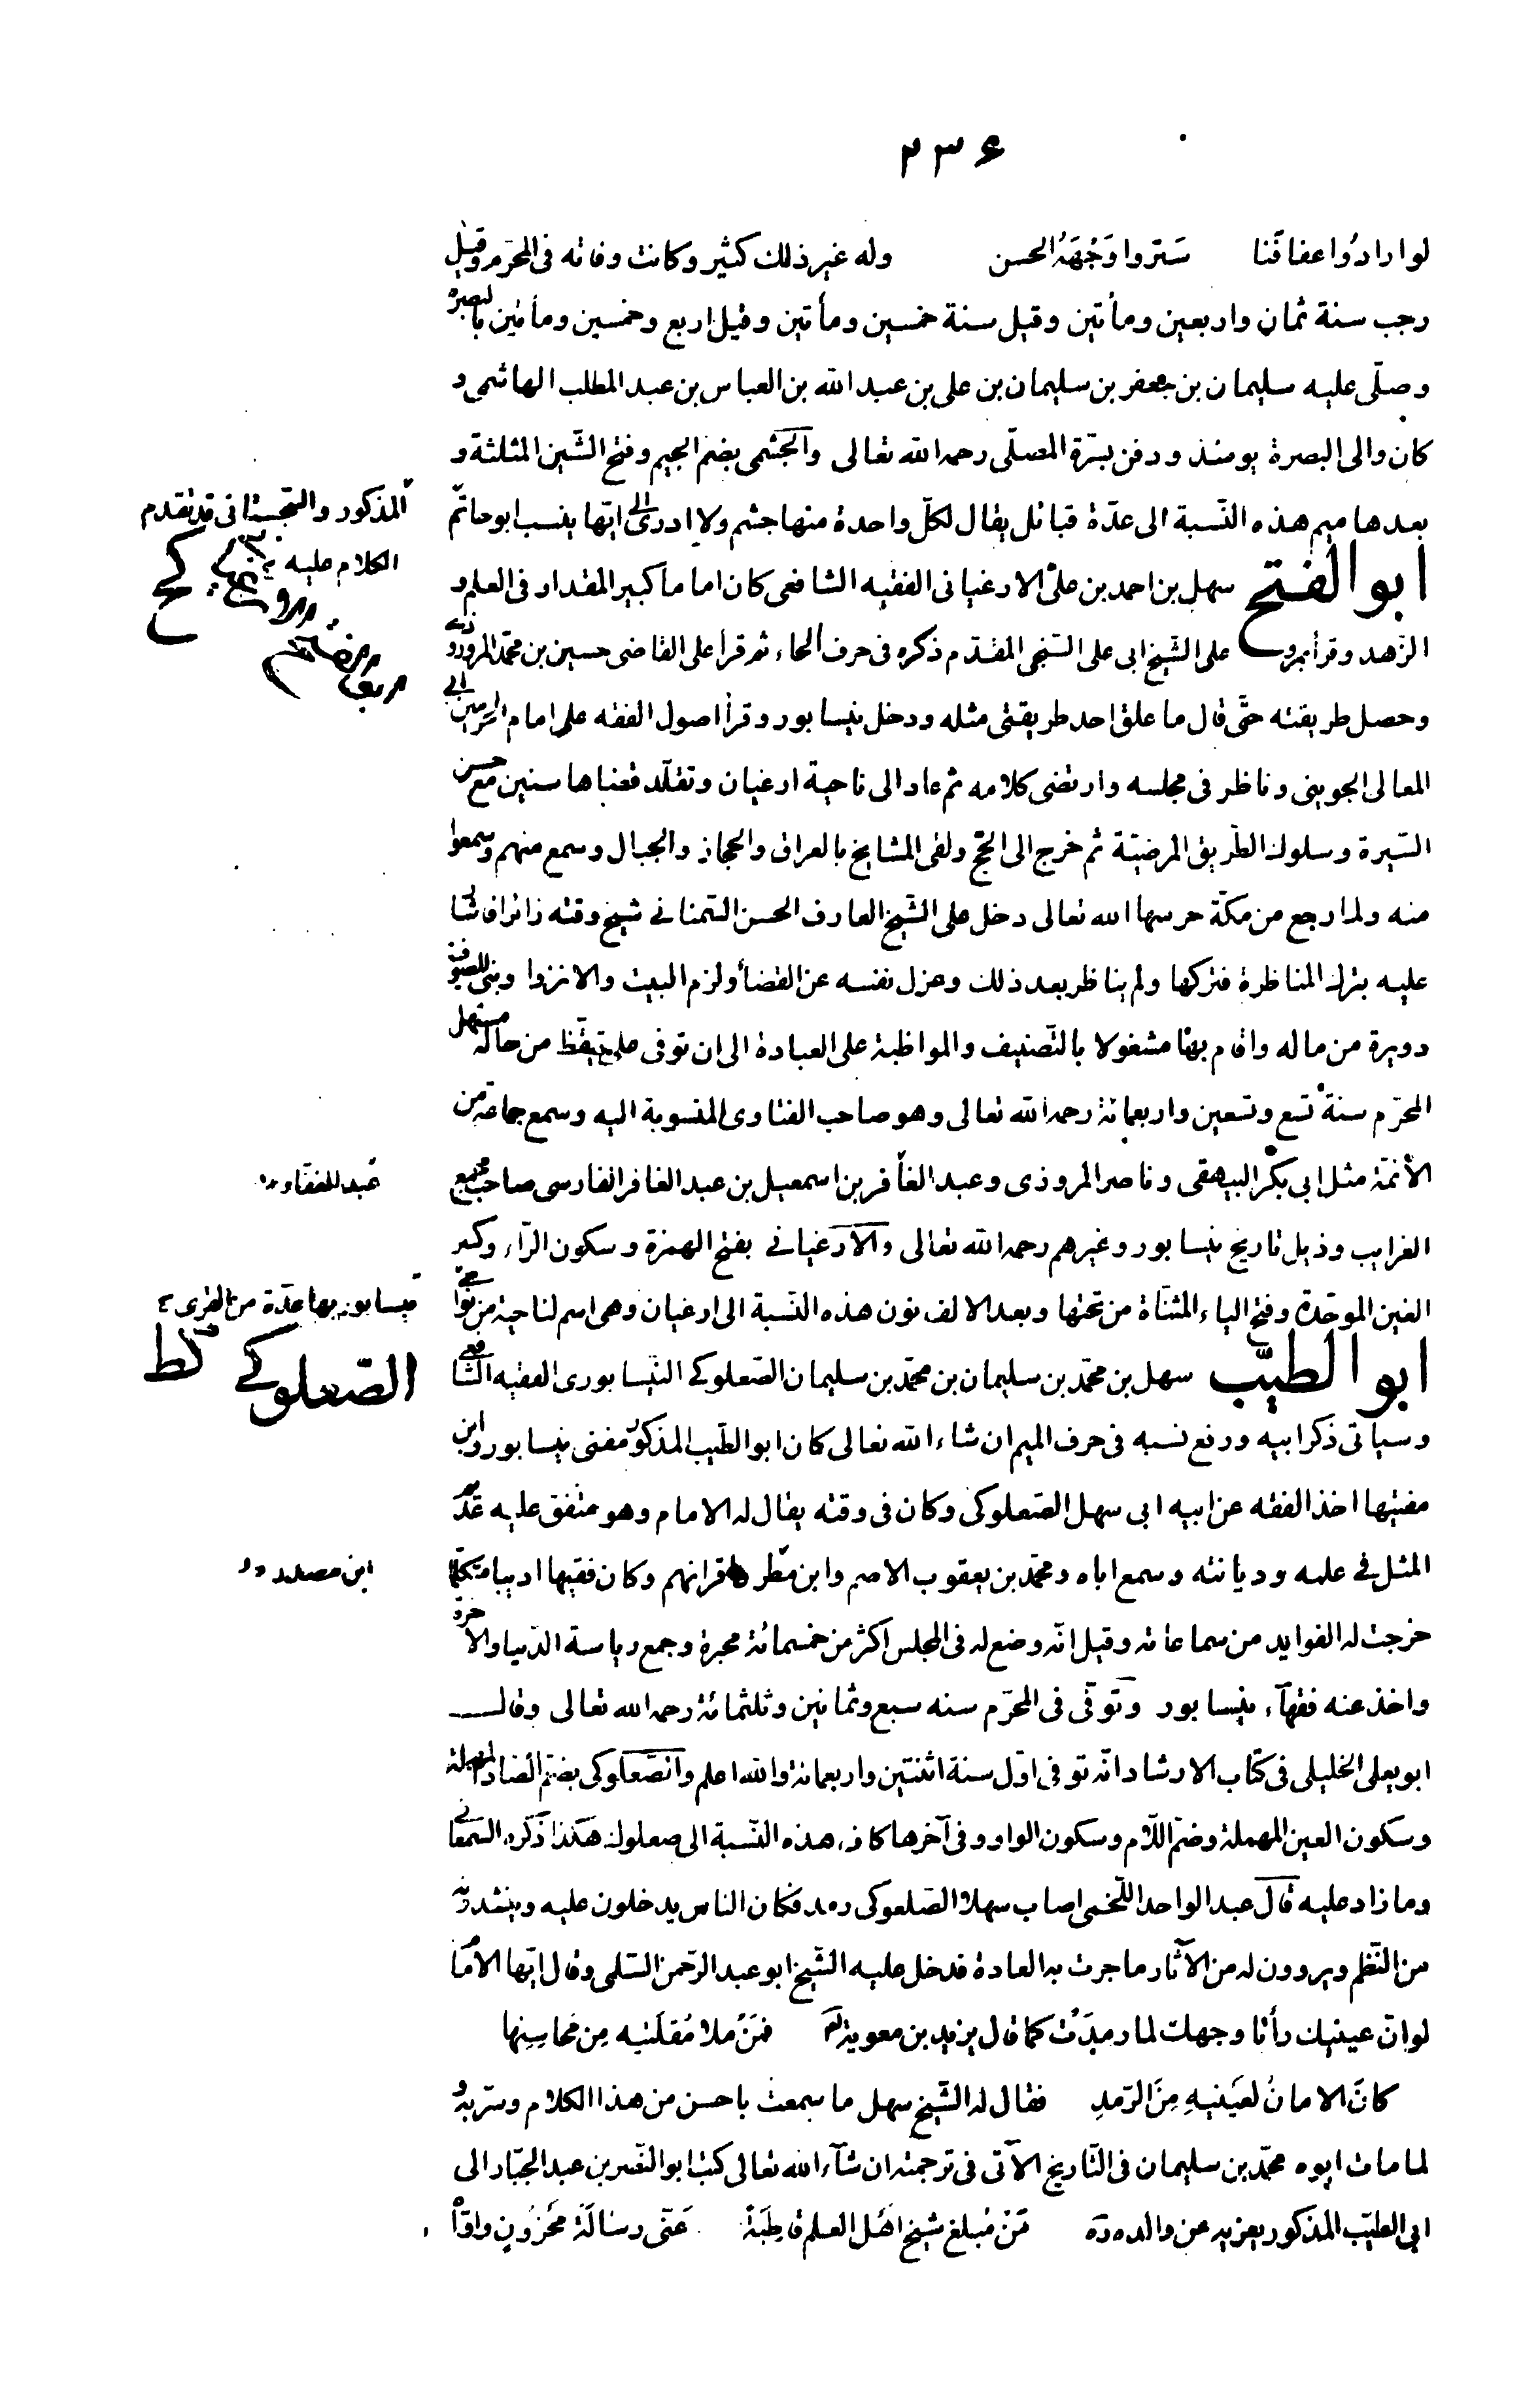 ٢٣٦
لو ارادُوا عفافَنا سَتروا وَجْهَهُ الحسن وله غير ذلك كثير وكانت وفاته فى المحرّم وقيل
رجب سنة ثمان واربعين ومأتين وقيل سنة خمسين ومأتين وقيل اربع وخمسين ومأتين بالبصرة
وصلّى عليه سليمان بن جعفر بن سليمان بن على بن عبد الله بن العباس بن عبد المطلب الهاشمى و
كان والى البصرة يومئذ ودفن بسرّة المصلّى رحمه الله تعالى والجشمى بضم الجيم وفتح الشّين المثلثة و
بعدها ميم هذه النّسبة الى عدّة قبائل يقال لكلّ واحدة منها جشم ولا ادرى الى ايّها ينسب ابو حاتم
المذكور والسّجستانى قد تقدم
الكلام عليه
ابو الفتح سهل بن احمد بن علىّ الارغيانى الفقيه الشافعى كان اماما كبير المقدار فى العلم و
الزّهد وقرأ بمرو على الشّيخ ابى على السّنجى المقدّم ذكره فى حرف الحاء ثم قرأ على القاضى حسين بن محمّد المرورّوذى
وحصل طريقته حتّى قال ما علق احد طريقتى مثله ودخل نيسابور وقرأ اصول الفقه على امام الحرمين ابى
المعالى الجوينى وناظر فى مجلسه وارتضى كلامه ثم عاد الى ناحية ارغيان وتقلّد قضاها سنين مع حسن
السّيرة وسلوك الطّريق المرضيّة ثم خرج الى الحجّ ولقى المشايخ بالعراق والحجاز والجبال وسمع منهم وسمعوا
منه ولما رجع من مكّة حرسها الله تعالى دخل على الشّيخ العارف الحسن السّمنانى شيخ وقته زائرا فاشا
عليه بترك المناظرة فتركها ولم يناظر بعد ذلك وعزل نفسه عن القضأ ولزم البيت والانزوا وبنى للصوفية
دويرة من ماله واقام بها مشغولا بالتّصنيف والمواظبة على العبادة الى ان توفى على تيقّظ من حاله مستهل
المحرّم سنة تسع وتسعين واربعمائة رحمه الله تعالى وهو صاحب الفتاوى المنسوبة اليه وسمع جماعة من
الأئمّة مثل ابى بكر البيهقى وناصر المروذى وعبد الغافر بن اسمعيل بن عبد الغافر الفارسى صاحب مجمع
الغرايب وذيل تاريخ نيسابور وغيرهم رحمه الله تعالى والارغيانى بفتح الهمزة وسكون الرّاء وكسر
الغين الموحّدة وفتح الياء المثنّاة من تحتها وبعد الالف نون هذه النّسبة الى ارغيان وهى اسم لناحية من نواحى
نيسابور بها عدّة من القرى
ابو الطيّب سهل بن محمّد بن سليمان بن محمّد بن سليمان الصّعلوكى النّيسابورى الفقيه الشّافعى
الصّعلوكى
وسياتى ذكر ابيه ورفع نسبه فى حرف الميم ان شاء الله تعالى كان ابو الطّيب المذكور مفتى نيسابور وابن
مفتيها اخذ الفقه عن ابيه ابى سهل الصّعلوكى وكان فى وقته يقال له الامام وهو متّفق عليه عديم
المثل فى علمه وديانته وسمع اباه ومحمّد بن يعقوب الاصم وابن مطر واقرانهم وكان فقيها اديبا متكلّما
خرجت له الفوايد من سماعاته وقيل انّه وضع له فى المجلس اكثر من خمسمائة محبرة وجمع رياسة الدّنيا والاخرة
واخذ عنه فقهآء نيسابور وتوفّى فى المحرّم سنه سبع وثمانين وثلثمائة رحمه الله تعالى وقال
ابو يعلى الخليلى فى كتاب الارشاد انّه توفى اوّل سنة اثنتين واربعمائة والله اعلم والصّعلوكى بضمّ الصّاد المهملة
وسكون العين المهملة وضمّ اللّام وسكون الواو وفى آخرها كاف هذه النّسبة الى صعلوك هكذا ذكره السّمعانى
وما زاد عليه قال عبد الواحد اللّخمى اصاب سهلا الصّلعوكى رمد فكان الناس يدخلون عليه وينشدونه
من النّظم ويروون له من الآثار ما جرت به العادة فدخل عليه الشّيخ ابو عبد الرّحمن السّلمى وقال ايّها الامام
لو انّ عينيك رأتا وجهك لما رمدَت كما قال يزيد بن معوية فمَن ملا مُقلَتيه مِن مَحاسِنِها
كانَ الامانُ لعَينيهِ مِنَ الرّمدِ فقال له الشّيخ سهل ما سمعت باحسن من هذا الكلام وسرّ به و
لما مات ابوه محمّد بن سليمان فى التّاريخ الآتى فى ترجمته ان شآء الله تعالى كتب ابو النّضر بن عبد الجبّار الى
ابى الطيّب المذكور يعزيه عن والده مَنْ مُبلغ شيخ اهَل العلم قاطِبَةً عَنّى رسالَة مَحزُونٍ واوّاْ